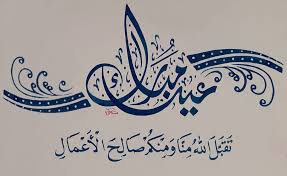 عيد مبارك
تَقَبَّلَ اللهُ مِنَّا وَمِنكُمْ صَالِحَ الأَعْمَالِ